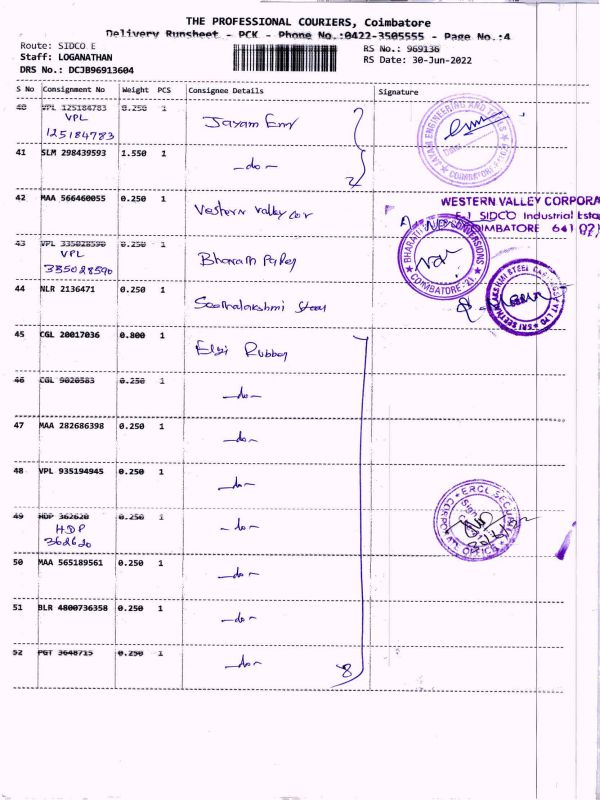 THE PROFESSIONAL COURIERS, Coimbatore
Delivery Runsheet - PCK - Phone No.:0422-3505555 - Page No.:4
Route: SIDCO E
RS No.: 969136
Staff: LOGANATHAN
RS Date: 30-Jun-2022
DRS No.: DCJB96913604
S No Consignment No Weight PCS Consignee Details Signature
40 VPL 125184783 0.250 1
VPL
125184783
Jayam Eng
41 SLM 298439593 1.550 1 -do-
2
42 MAA 566460055 0.250 1 Western valley cor
WESTERN VALLEY CORPORA
E-1 SIDCO Industrial Esta
COIMBATORE 641 021
43 VPL 335028590 0.250 1
VPL
335028590
COIMBATORE-21
44 NLR 2136471 0.250 1 Seethalakshmi Steel
45 CGL 20017036 0.800 1 Elgi Rubber
46 CGL 9020583 0.250 1 -do-
47 MAA 282686398 0.250 1 -do-
48 VPL 935194945 0.250 1 -do-
49 HDP 362620 0.250 1 -do-
HDP
362620
ERCL SECURITY
CORPORATE OFFICE
50 MAA 565189561 0.250 1 -do-
51 BLR 4800736358 0.250 1 -do-
52 PGT 3648715 0.250 1 -do-
8